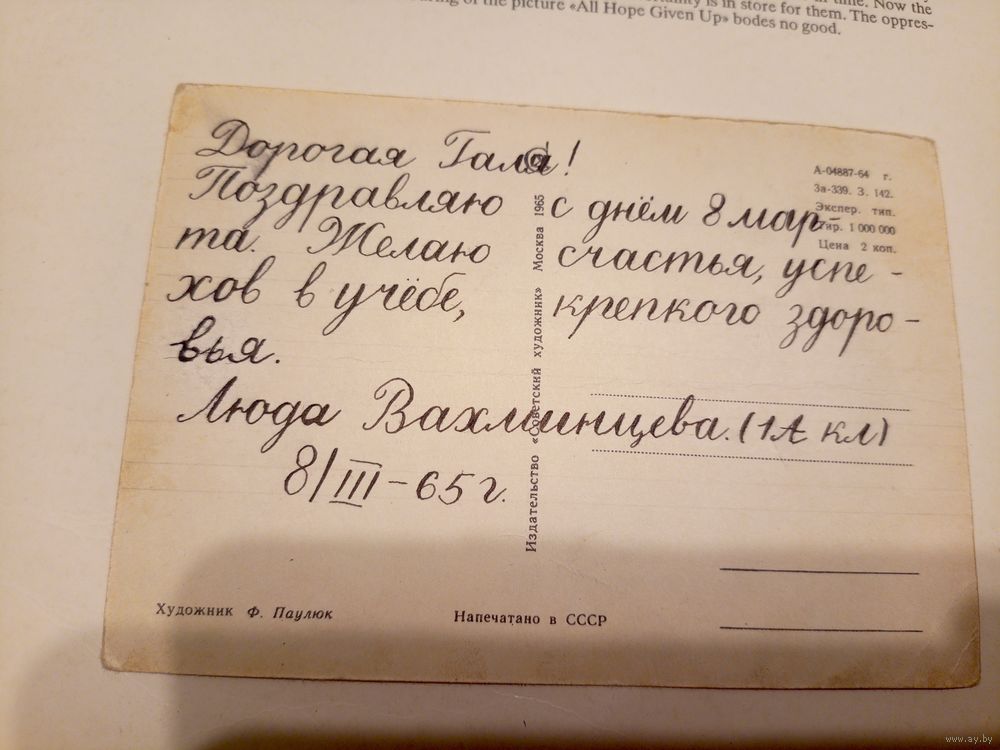 time. Now the
is in store for them. The oppres-
of the picture «All Hope Given Up» bodes no good.
Дорогая Галя!
Поздравляю с днём 8 мар-
та. Желаю счастья, успе-
хов в учёбе, крепкого здоро-
вья.
Люда Вахминцева. (1А кл)
8/III-65 г.
А-04887-64 г.
За-339. З. 142.
Экспер. тип.
Тир. 1 000 000
Цена 2 коп.
Издательство «Советский художник» Москва 1965
Художник Ф. Паулюк
Напечатано в СССР
www.ay.by